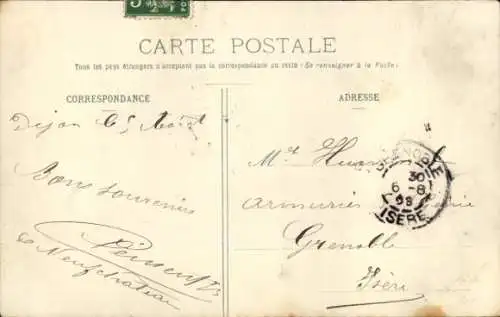 5
CARTE POSTALE
Tous les pays étrangers n'acceptent pas la correspondance au recto (Se renseigner à la Poste)
CORRESPONDANCE
ADRESSE
Dijon 6 Août
Bons souvenirs
de Neufchateau
Mr
Armurier
Grenoble
Isère
GRENOBLE
30
6 -8
08
ISERE